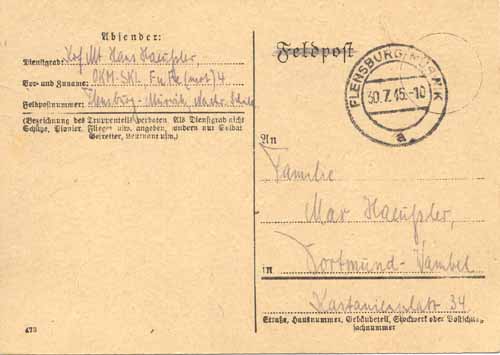 Absender:
Dienstgrad: Hans Haeußler,
Vor- und Zuname: OKM-SKL, (mot) 4
Feldpostnummer: Flensburg-Mürwik,
(Bezeichnung des Truppenteils verboten. Als Dienstgrad nicht
Schütze, Pionier, Flieger usw. angeben, sondern nur Soldat
Gefreiter, Leutnant usw.)
473
Feldpost
FLENSBURG-MÜRWIK
30.7.45.-10
a
An
Familie
Max Haeußler,
in Dortmund-Wambel
Kastanienplatz 34
Straße, Hausnummer, Gebäudeteil, Stockwerk oder Postschließ-
fachnummer